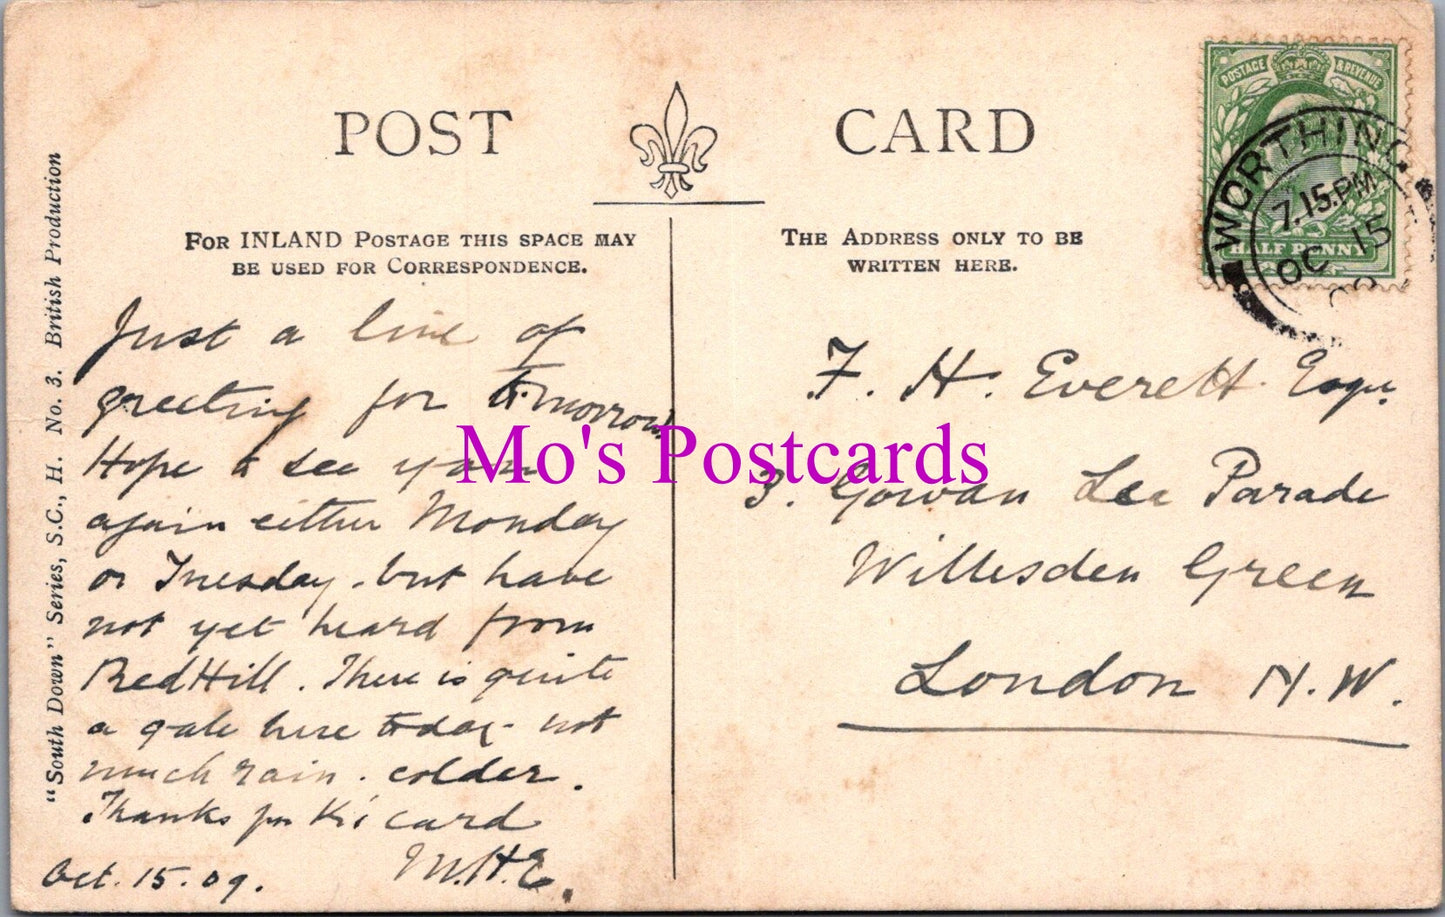 POST CARD
FOR INLAND POSTAGE THIS SPACE MAY
BE USED FOR CORRESPONDENCE.
THE ADDRESS ONLY TO BE
WRITTEN HERE.
"South Down" Series, S.C., H. No. 3. British Production
POSTAGE & REVENUE
HALF PENNY
WORTHING
7.15.PM
OC 15
Just a line of
greeting for tomorrow
Hope to see you
again either Monday
or Tuesday. but have
not yet heard from
Red Hill. There is quite
a gale here today - not
much rain. colder.
Thanks for card
M.H.E.
Oct. 15. 09.
F. H. Everett Esqr.
3. Gowan Lea Parade
Willesden Green
London N.W.
Mo's Postcards